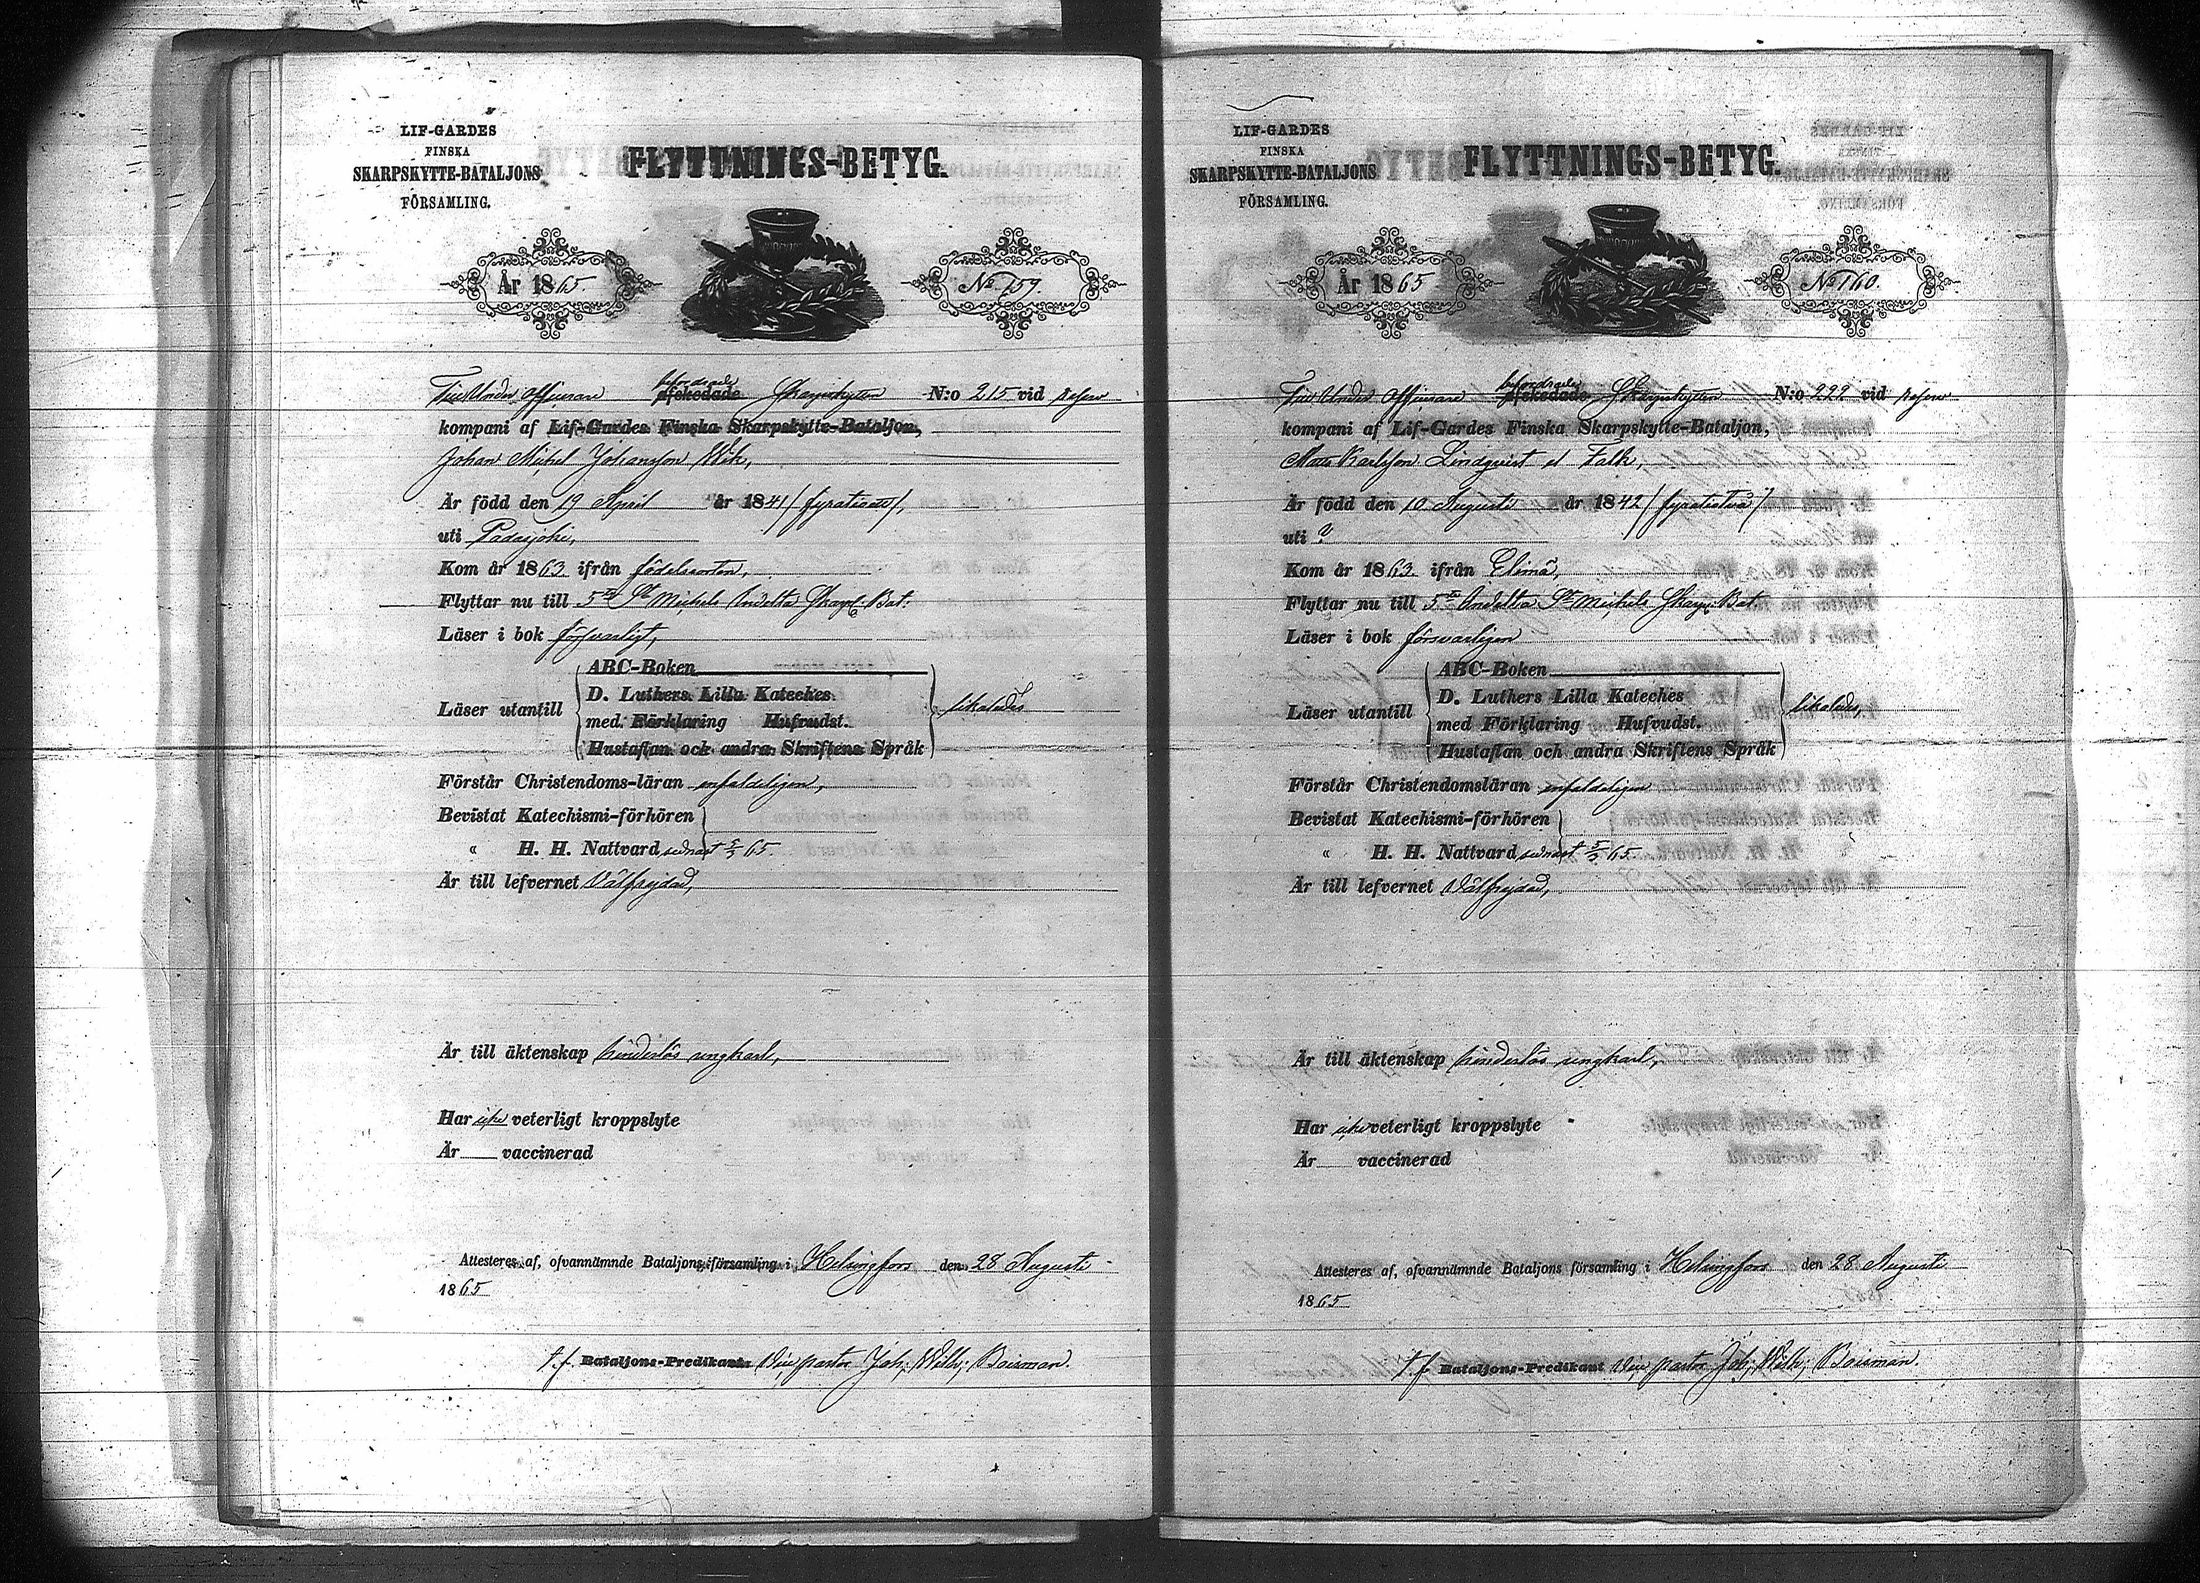 LIF-GARDES
FINSKA
SKARPSKYTTE-BATALJONS
FÖRSAMLING.
FLYTTNINGS-BETYG.
År 1865
No 759.
Till Under Officerare befordrade afskedade Skarpskytten N:o 215 vid reserv
kompani af Lif-Gardes Finska Skarpskytte-Bataljon,
Johan Michel Johansson Wik,
Är född den 19 April år 1841 / fyrationett /,
uti Padasjoki,
Kom år 1863 ifrån födelseorten,
Flyttar nu till 5te St Michels Indelta Skarpsk. Bat:
Läser i bok försvarligt,
Läser utantill
ABC-Boken
D. Luthers Lilla Kateches
med Förklaring Hufvudst.
Hustaflan och andra Skriftens Språk
likaledes
Förstår Christendoms-läran enfaldeligen,
Bevistat Katechismi-förhören
« H. H. Nattvard senast 5/3 65.
Är till lefvernet Välfrejdad,
Är till äktenskap hinderlös ungkarl,
Har icke veterligt kroppslyte
Är vaccinerad
Attesteres af, ofvannämnde Bataljons församling i Helsingfors den 28 Augusti
1865
t.f. Bataljons-Predikant Vice pastor Joh; Wilh; Boisman.
LIF-GARDES
FINSKA
SKARPSKYTTE-BATALJONS
FÖRSAMLING.
FLYTTNINGS-BETYG.
År 1865
No 760.
Till Under Officerare befordrade afskedade Skarpskytten N:o 222 vid reserv
kompani af Lif-Gardes Finska Skarpskytte-Bataljon,
Mats Karlsson Lindqvist el Falk,
Är född den 10 Augusti år 1842 / fyratiotvå /
uti ?
Kom år 1863 ifrån Elimä,
Flyttar nu till 5te Indelta St Michels Skarps. Bat
Läser i bok försvarligen
Läser utantill
ABC-Boken
D. Luthers Lilla Kateches
med Förklaring Hufvudst.
Hustaflan och andra Skriftens Språk
likaledes,
Förstår Christendomsläran enfaldeligen
Bevistat Katechismi-förhören
« H. H. Nattvard senast 5/3 65.
Är till lefvernet Välfrejdad,
Är till äktenskap hinderlös ungkarl,
Har icke veterligt kroppslyte
Är vaccinerad
Attesteres af, ofvannämnde Bataljons församling i Helsingfors den 28 Augusti
1865
t.f. Bataljons-Predikant Vice pastor Joh; Wilh; Boisman.